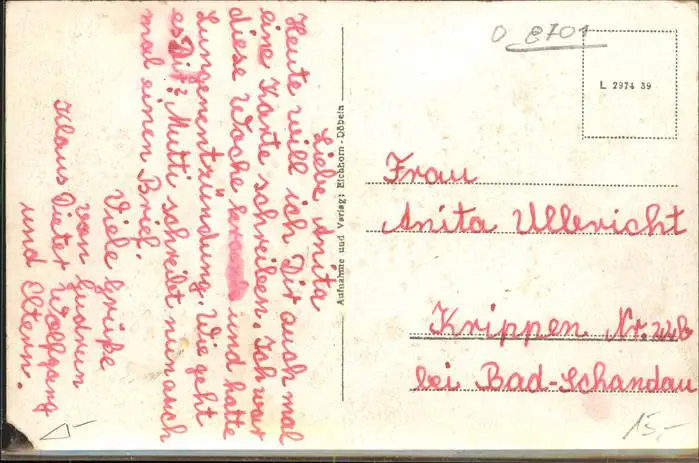 Liebe Anita
Heute will ich Dir auch mal
eine Karte schreiben. Ich war
diese Woche krank und hatte
Lungenentzündung. Wie geht
es Dir? Mutti schreibt nun auch
mal einen Brief.
Viele Grüße
von Gudrun
Klaus Dieter Wolfgang
und Eltern.
Aufnahme und Verlag: Eichhorn - Döbeln
D 8701
L 2974 39
Frau
Anita Ullericht
Krippen Nr.
bei Bad-Schandau
15,-